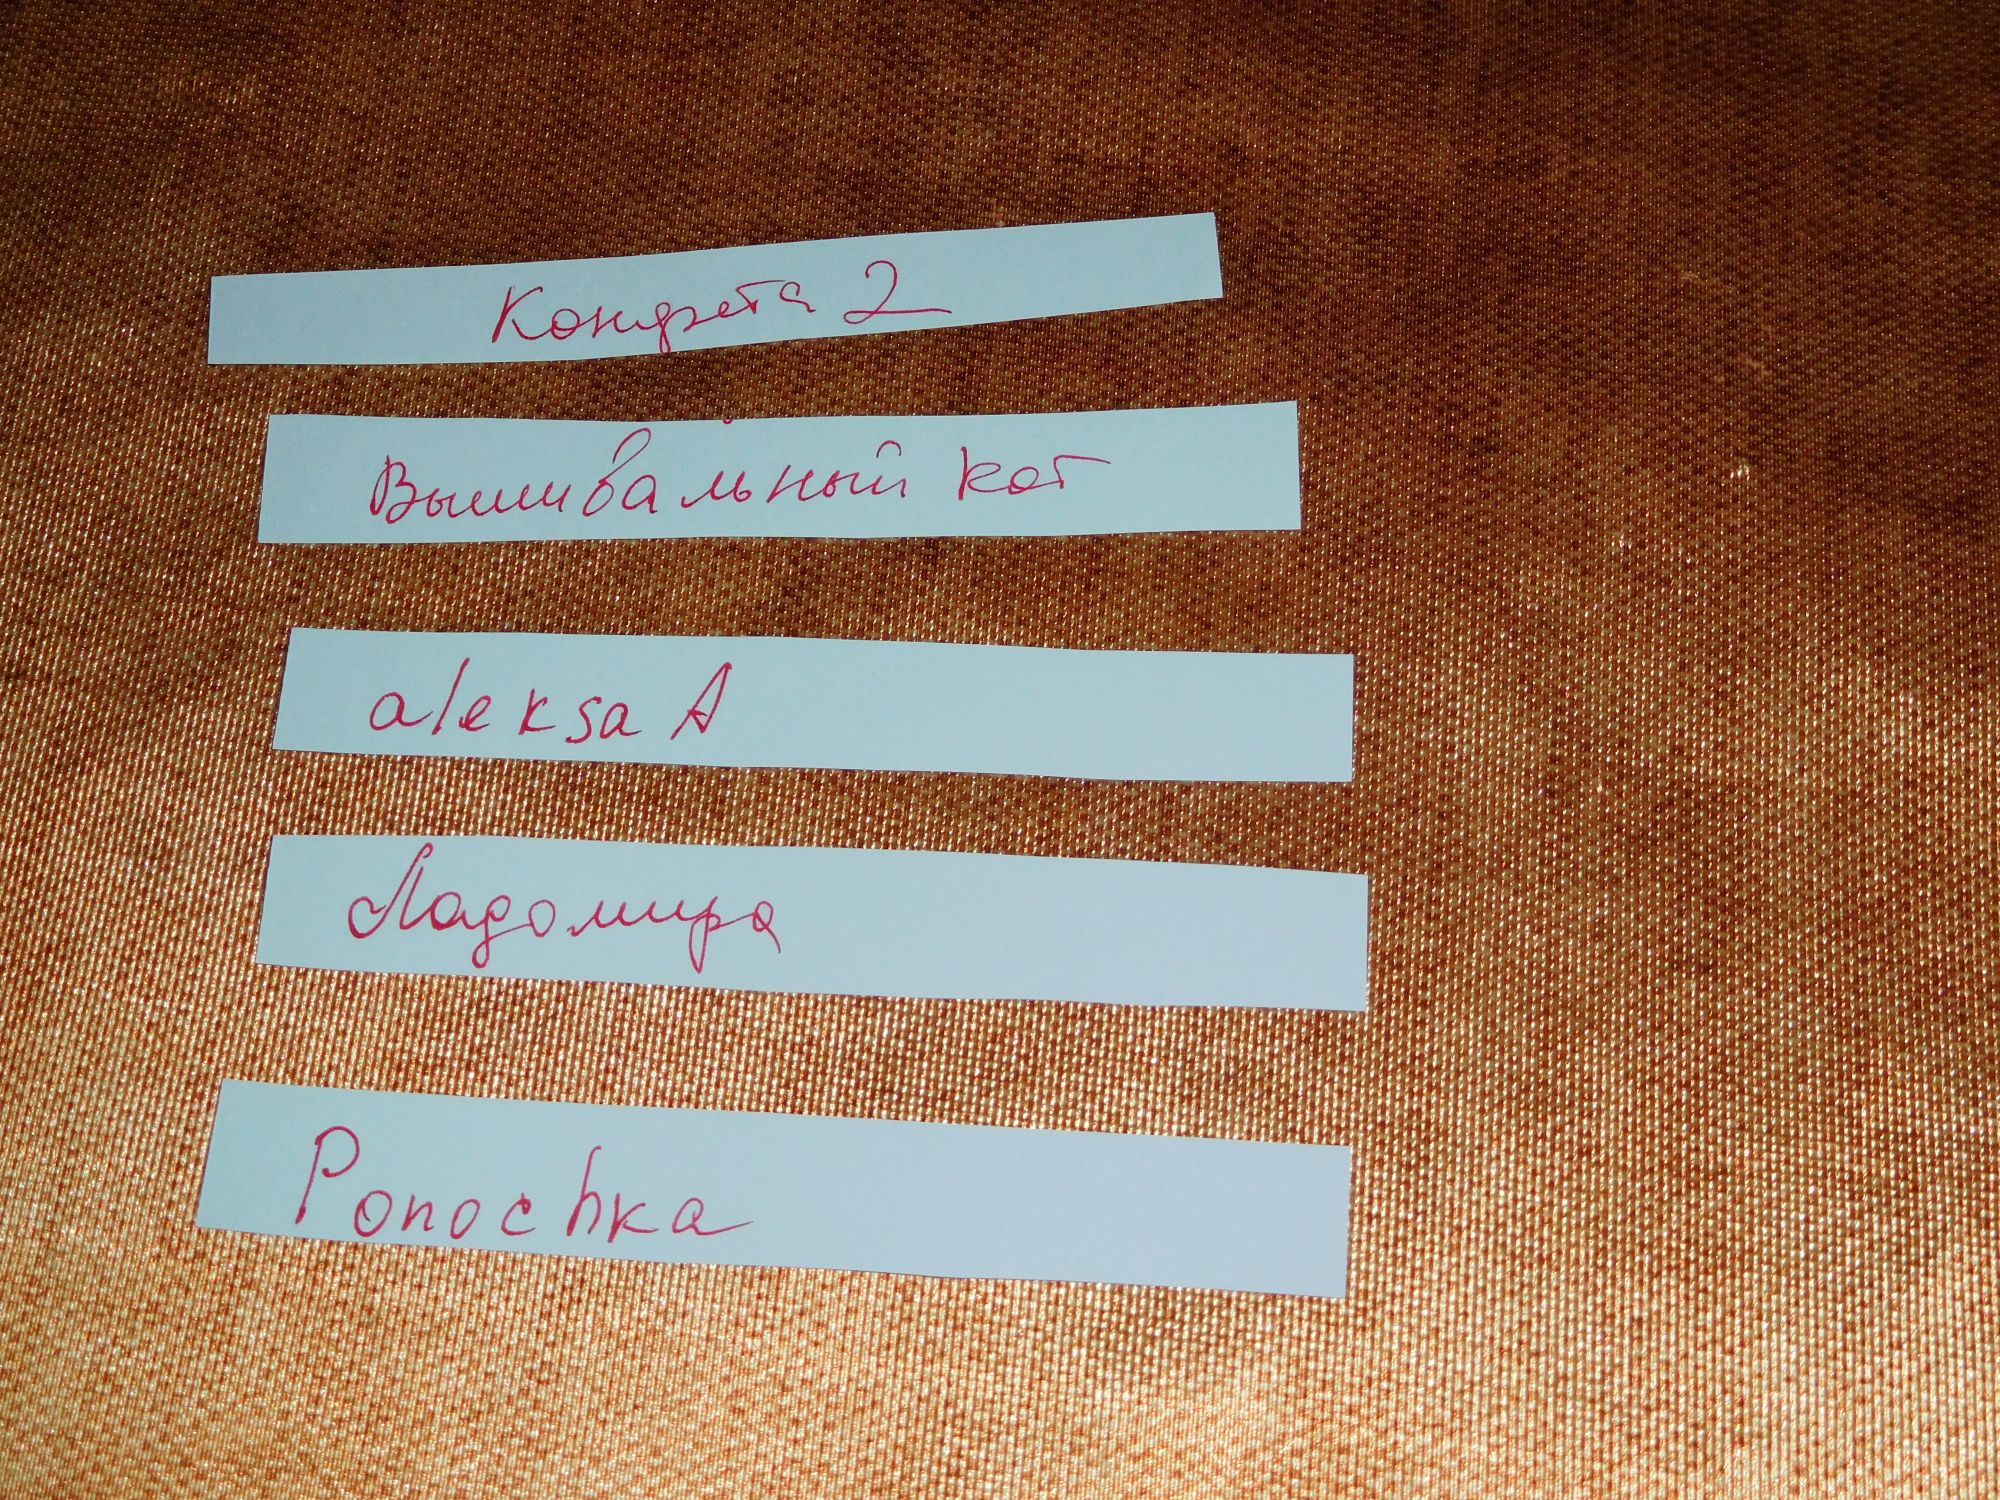 Конфета 2
Вышивальный кот
aleksa A
Ладомира
Ponochka